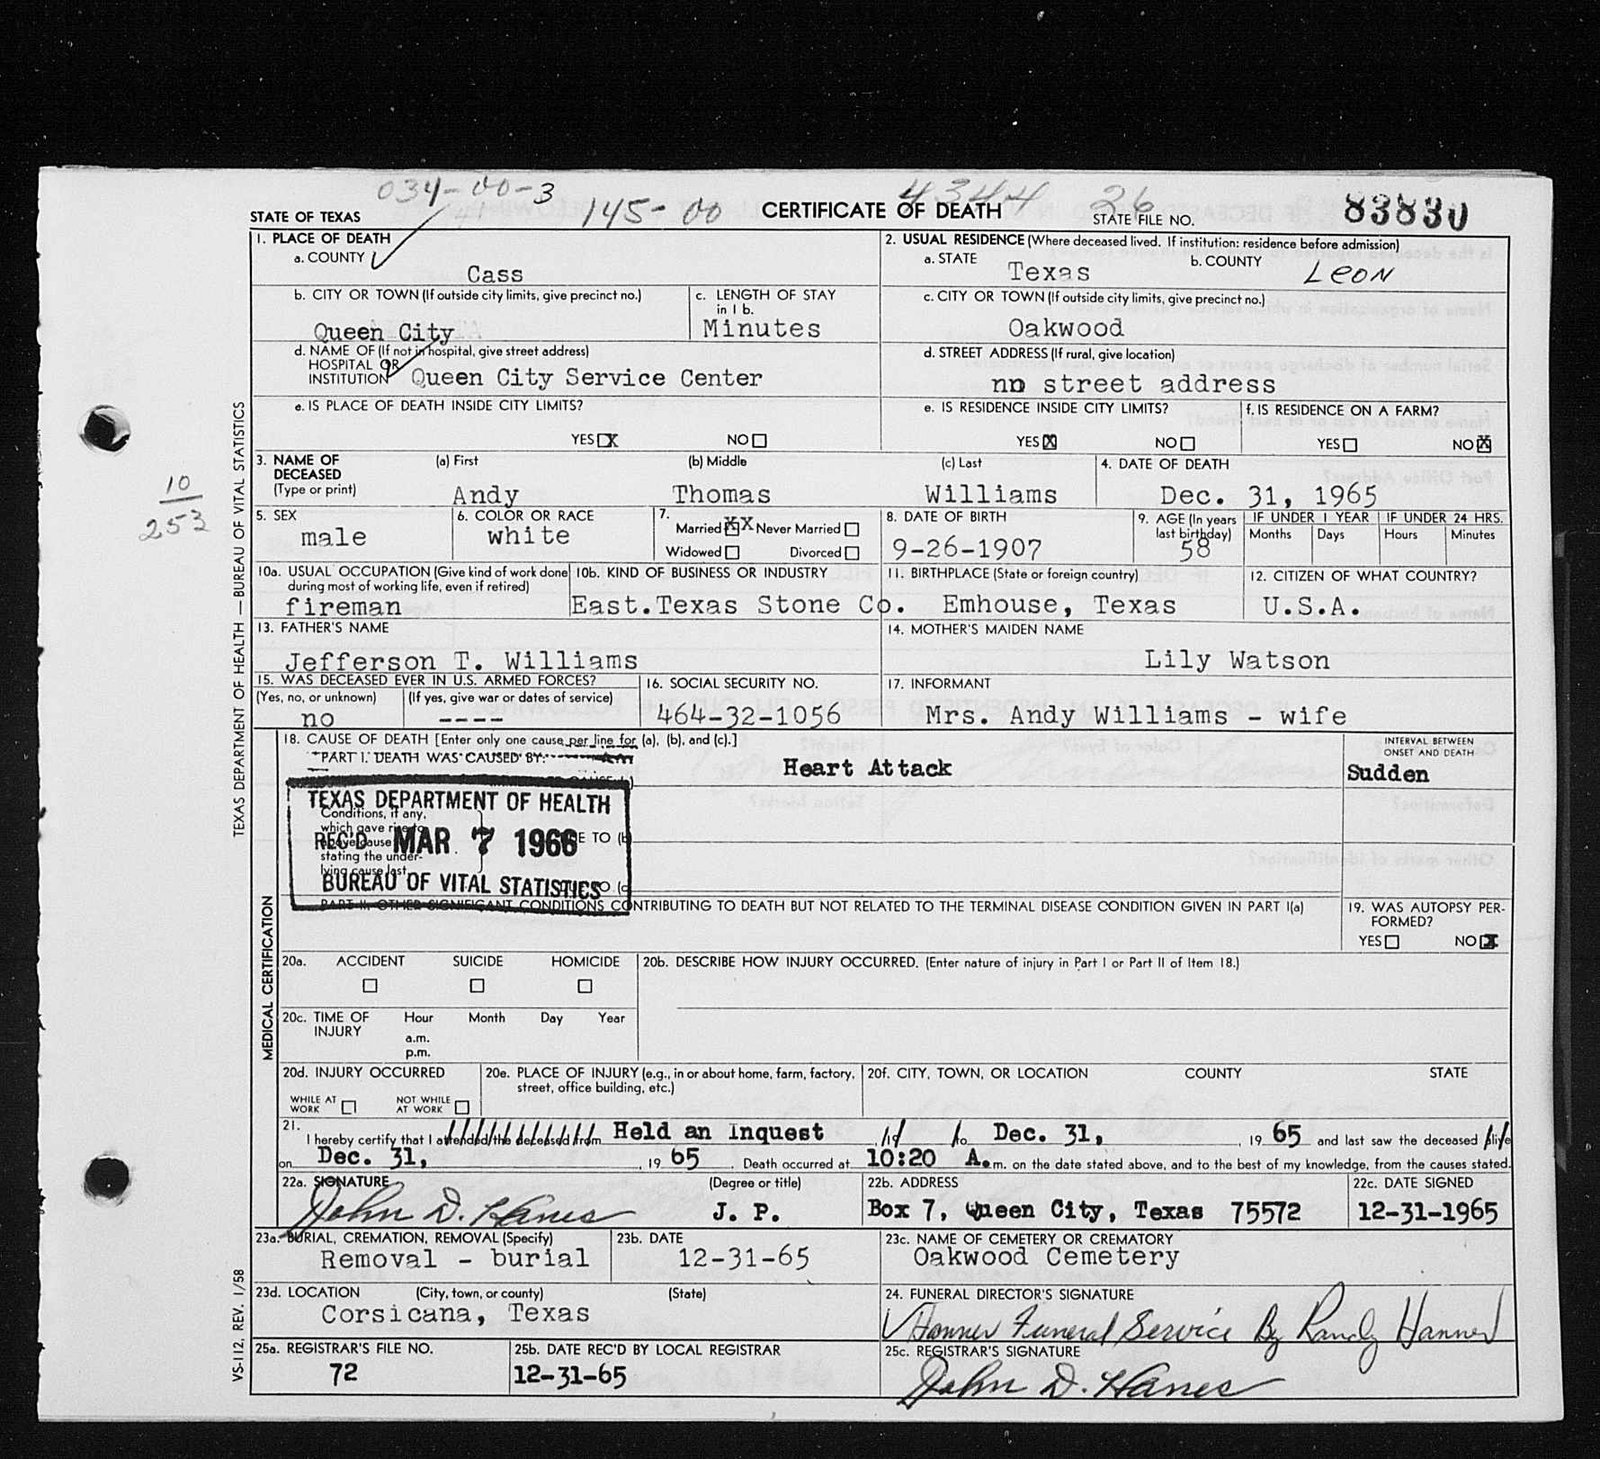 034-00-3
145-00
4344 26
STATE OF TEXAS
CERTIFICATE OF DEATH
STATE FILE NO.
83830
1. PLACE OF DEATH
a. COUNTY
Cass
2. USUAL RESIDENCE (Where deceased lived. If institution: residence before admission)
a. STATE
Texas
b. COUNTY
Leon
b. CITY OR TOWN (If outside city limits, give precinct no.)
Queen City
c. LENGTH OF STAY in 1 b.
Minutes
c. CITY OR TOWN (If outside city limits, give precinct no.)
Oakwood
d. NAME OF (If not in hospital, give street address)
HOSPITAL OR
INSTITUTION
Queen City Service Center
d. STREET ADDRESS (If rural, give location)
no street address
e. IS PLACE OF DEATH INSIDE CITY LIMITS?
YES X NO
e. IS RESIDENCE INSIDE CITY LIMITS?
YES X NO
f. IS RESIDENCE ON A FARM?
YES NO X
3. NAME OF DECEASED (Type or print)
(a) First (b) Middle (c) Last
Andy Thomas Williams
4. DATE OF DEATH
Dec. 31, 1965
5. SEX
male
6. COLOR OR RACE
white
7. Married X X Never Married
Widowed Divorced
8. DATE OF BIRTH
9-26-1907
9. AGE (In years last birthday)
58
IF UNDER 1 YEAR
Months Days
IF UNDER 24 HRS.
Hours Minutes
10a. USUAL OCCUPATION (Give kind of work done during most of working life, even if retired)
fireman
10b. KIND OF BUSINESS OR INDUSTRY
East.Texas Stone Co.
11. BIRTHPLACE (State or foreign country)
Emhouse, Texas
12. CITIZEN OF WHAT COUNTRY?
U.S.A.
13. FATHER'S NAME
Jefferson T. Williams
14. MOTHER'S MAIDEN NAME
Lily Watson
15. WAS DECEASED EVER IN U.S. ARMED FORCES?
(Yes, no, or unknown) (If yes, give war or dates of service)
no ----
16. SOCIAL SECURITY NO.
464-32-1056
17. INFORMANT
Mrs. Andy Williams - wife
18. CAUSE OF DEATH [Enter only one cause per line for (a), (b), and (c).]
PART I. DEATH WAS CAUSED BY:
Heart Attack
INTERVAL BETWEEN ONSET AND DEATH
Sudden
TEXAS DEPARTMENT OF HEALTH
REC'D MAR 7 1966
BUREAU OF VITAL STATISTICS
Conditions, if any,
which gave rise to
above cause
stating the under-
lying cause last.
PART II. OTHER SIGNIFICANT CONDITIONS CONTRIBUTING TO DEATH BUT NOT RELATED TO THE TERMINAL DISEASE CONDITION GIVEN IN PART I(a)
19. WAS AUTOPSY PERFORMED?
YES NO X
20a. ACCIDENT SUICIDE HOMICIDE
20b. DESCRIBE HOW INJURY OCCURRED. (Enter nature of injury in Part I or Part II of Item 18.)
20c. TIME OF INJURY
Hour Month Day Year
a.m.
p.m.
20d. INJURY OCCURRED
WHILE AT WORK NOT WHILE AT WORK
20e. PLACE OF INJURY (e.g., in or about home, farm, factory, street, office building, etc.)
20f. CITY, TOWN, OR LOCATION COUNTY STATE
21. I hereby certify that I attended the deceased from Held an Inquest , 19 to Dec. 31, , 19 65 and last saw the deceased alive
on Dec. 31, , 19 65 . Death occurred at 10:20 A.m. on the date stated above, and to the best of my knowledge, from the causes stated.
22a. SIGNATURE (Degree or title)
John D. Hanes J. P.
22b. ADDRESS
Box 7, Queen City, Texas 75572
22c. DATE SIGNED
12-31-1965
23a. BURIAL, CREMATION, REMOVAL (Specify)
Removal - burial
23b. DATE
12-31-65
23c. NAME OF CEMETERY OR CREMATORY
Oakwood Cemetery
23d. LOCATION (City, town, or county) (State)
Corsicana, Texas
24. FUNERAL DIRECTOR'S SIGNATURE
Hanner Funeral Service By Randy Hanner
25a. REGISTRAR'S FILE NO.
72
25b. DATE REC'D BY LOCAL REGISTRAR
12-31-65
25c. REGISTRAR'S SIGNATURE
John D. Hanes
10
253
TEXAS DEPARTMENT OF HEALTH — BUREAU OF VITAL STATISTICS
MEDICAL CERTIFICATION
VS-112, REV. 1/58